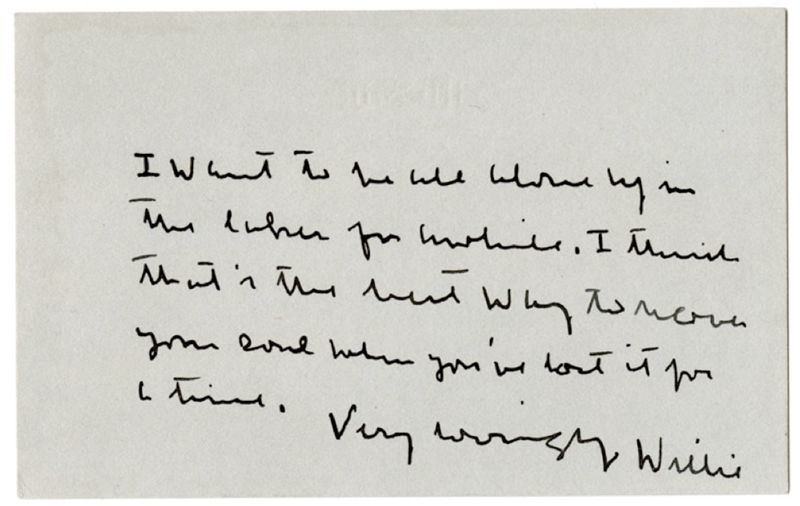 I want to be all alone up in
the for awhile. I think
that's the best way to recover
your soul when you've lost it for
a time.
Very lovingly Willie